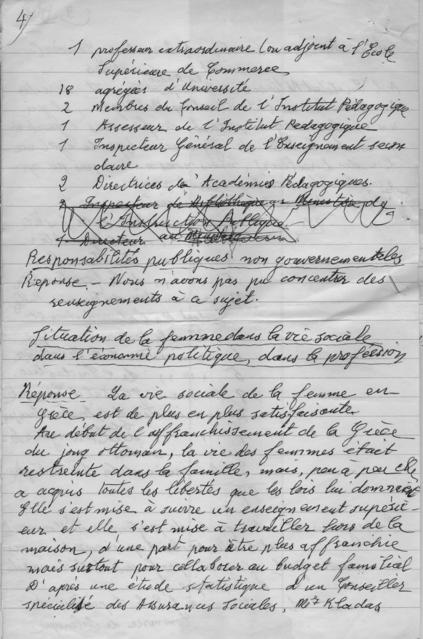 4/
1 professeur extraordinaire (ou adjoint à l'École
Supérieure de Commerce
18 agrégées d'Université
2 Membres du Conseil de l'Institut Pédagogique
1 Assesseur de l'Institut Pedagogique
1 Inspecteur Général de l'Enseignement secon
daire
2 Directrices de Académies Pedagogiques.
2 Inspecteur de Ministère
l'Instruction publique.
1 Directeur au
Responsabilités publiques non gouvernementeles
Reponse — Nous n'avons pas pu concentrer des
renseignements à ce sujet.
Situation de la femme dans la vie sociale
dans l'économie politique, dans la profession
Réponse. La vie sociale de la femme en
Grèce, est de plus en plus satisfaisante
Au début de l'affranchissement de la Grèce
du joug ottoman, la vie des femmes était
restreinte dans la famille, mais, peu a peu elle
a acquis toutes les libertes que les lois lui donnent
Elle s'est mise à suivre un enseignement supéri-
eur et elle s'est mise à travailler hors de la
maison, d'une part pour être plus affranchie
mais surtout pour collaborer au budget familial
D'après une étude statistique d'un Conseiller
specialisé des Assurances Sociales, Mr Kladas